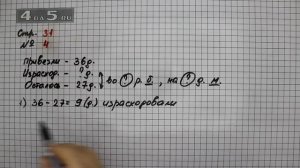 4 ДА 5.ru
Стр. 31
№ 4
Привезли - 36д.
Израсход. - ? д.
Осталось - 27д.
во ? р. б., на ? д. м.
1) 36 - 27 = 9 (д.) израсходовали